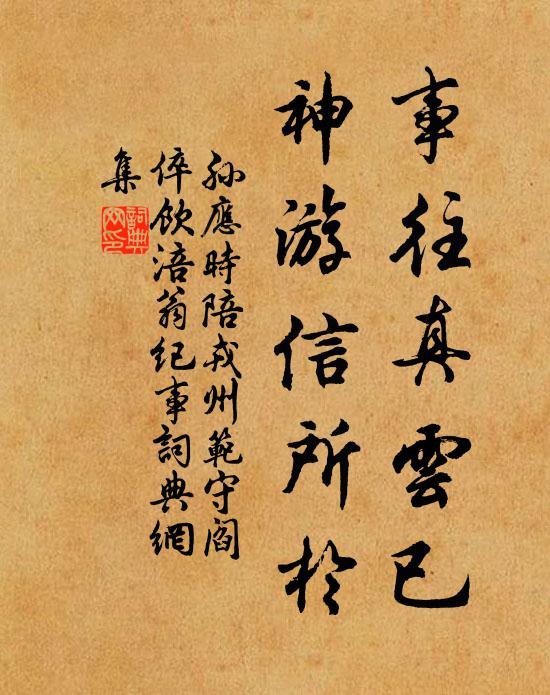 事往真雲已
神游信所於
孙應時陪戎州範守閻
倅飲涪翁纪事詞典網
集
詞典網印